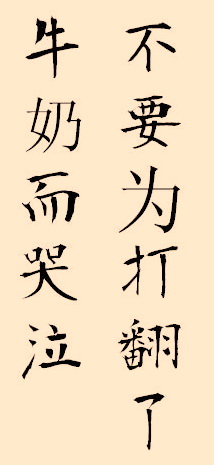 不要为打翻了
牛奶而哭泣